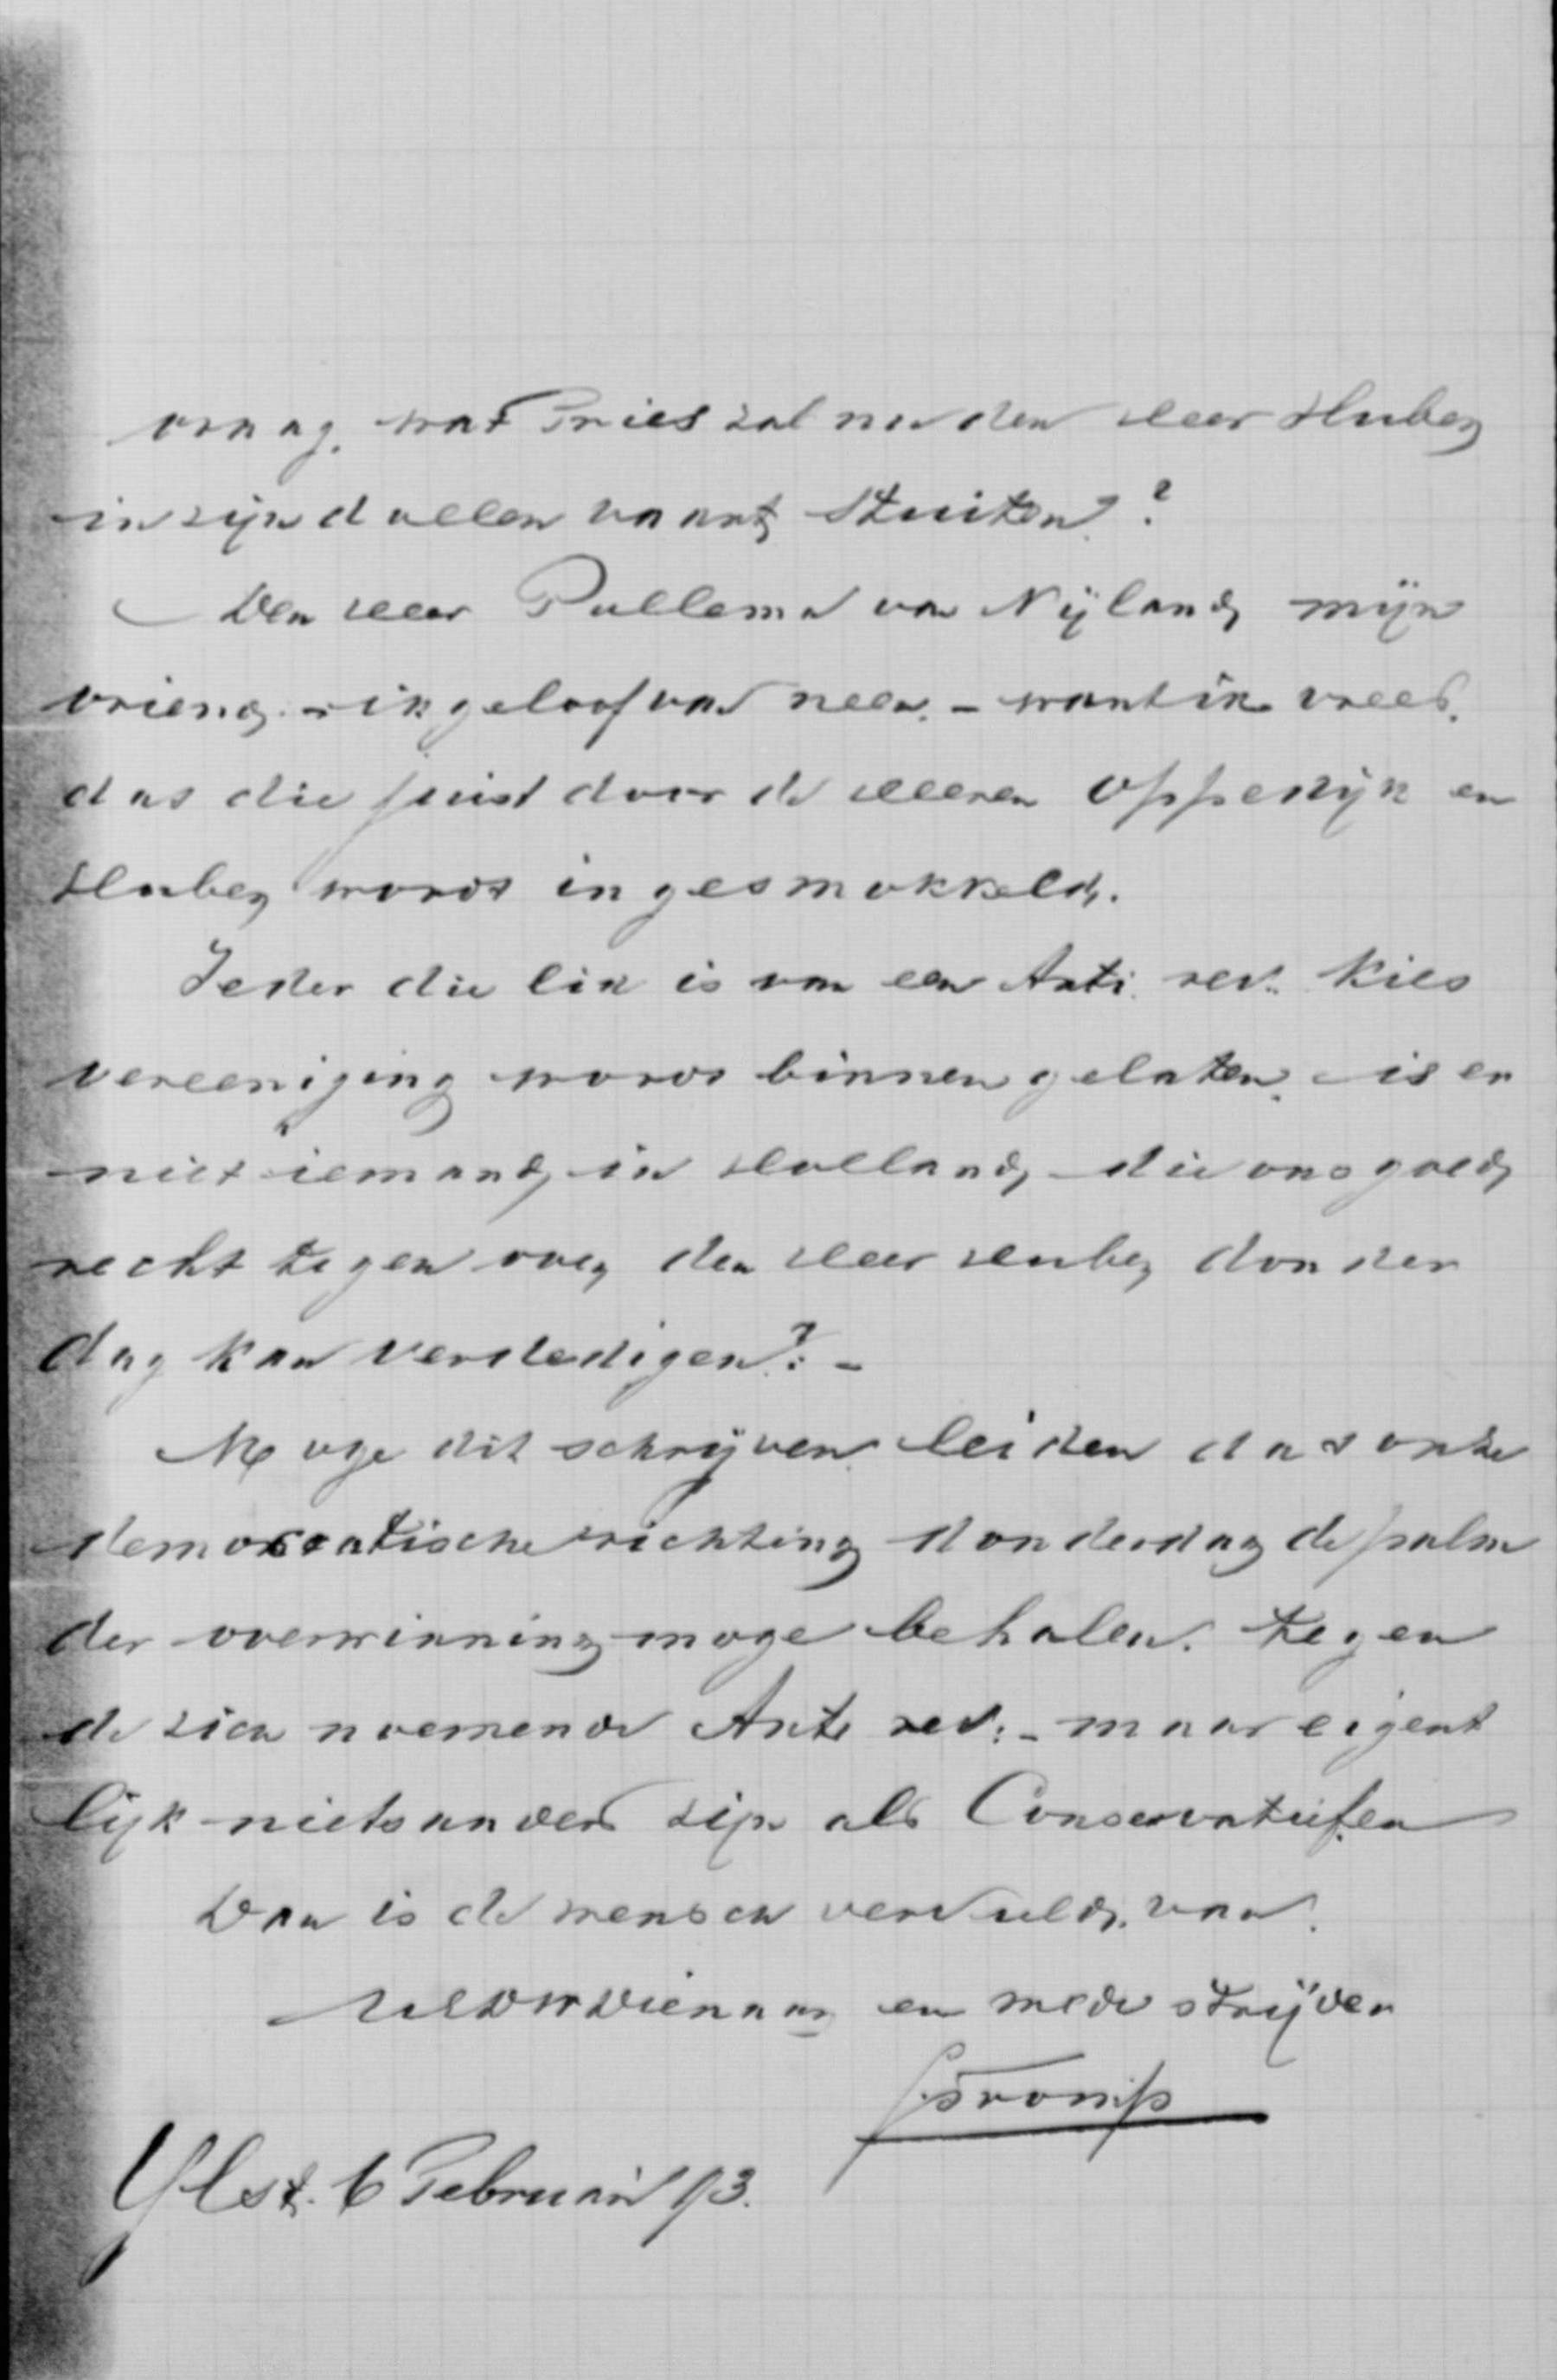 vraag. wat Fries zal nu den Heer Huber
in zijn dollen vaart stuiten?
Den Heer Pollema van Nijland, mijn
vriend - ik geloof van neen. - want ik vrees.
dat die juist door de Heeren Oppedijk en
Huber wordt ingesmokkeld.
Ieder die lid is van een Anti. rev. kies
vereeniging wordt binnen gelaten. - is er
niet iemand in Holland, die ons goed
recht tegen over den Heer Huber donder
dag kan verdedigen?: -
Moge dit schrijven leiden dat onze
democratische richting donderdag de palm
der overwinning moge behalen. tegen
de zich noemende Anti rev: - maar eigent
lijk niets anders zijn als Conservatiefen
Dan is de wensch vervuld. van.
UEDWDienaar en mede strijder
Tromp
IJlst. 6 Februari 93.